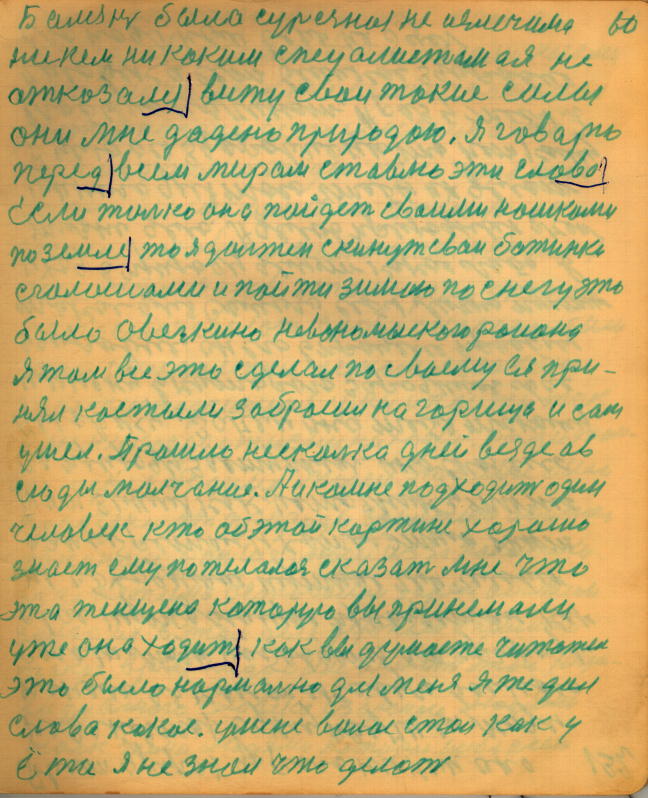 Балязн была сурезная не излечима 60
никем никаким спецалистам я не
отказалсе вижу свои такие силы
они мне дадено природою. Я говорю
перед всем мирам ставлю эти слова
Если только она пойдет своими ношками
по земле то я должен скинут свои ботинки
сголошами и пойти зимою по снегу это
было Овечкино невономыского района
Я там все это сделал по своему ея при-
нял костыли забросил на горища и сам
ушел. Прошло несколка дней везде ав
сюды молчание. А комне подходит один
человек кто об этой картине хорошо
знает ему пожелалося сказат мне что
эта женщена которую вы принемали
уже она ходит как вы думаете читатели
это было нармално для меня Я же дал
слова какое. умене волос стал как у
Я не знал что делат